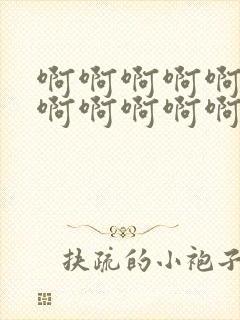 啊啊啊啊啊
啊啊啊啊啊
扶疏的小袍子